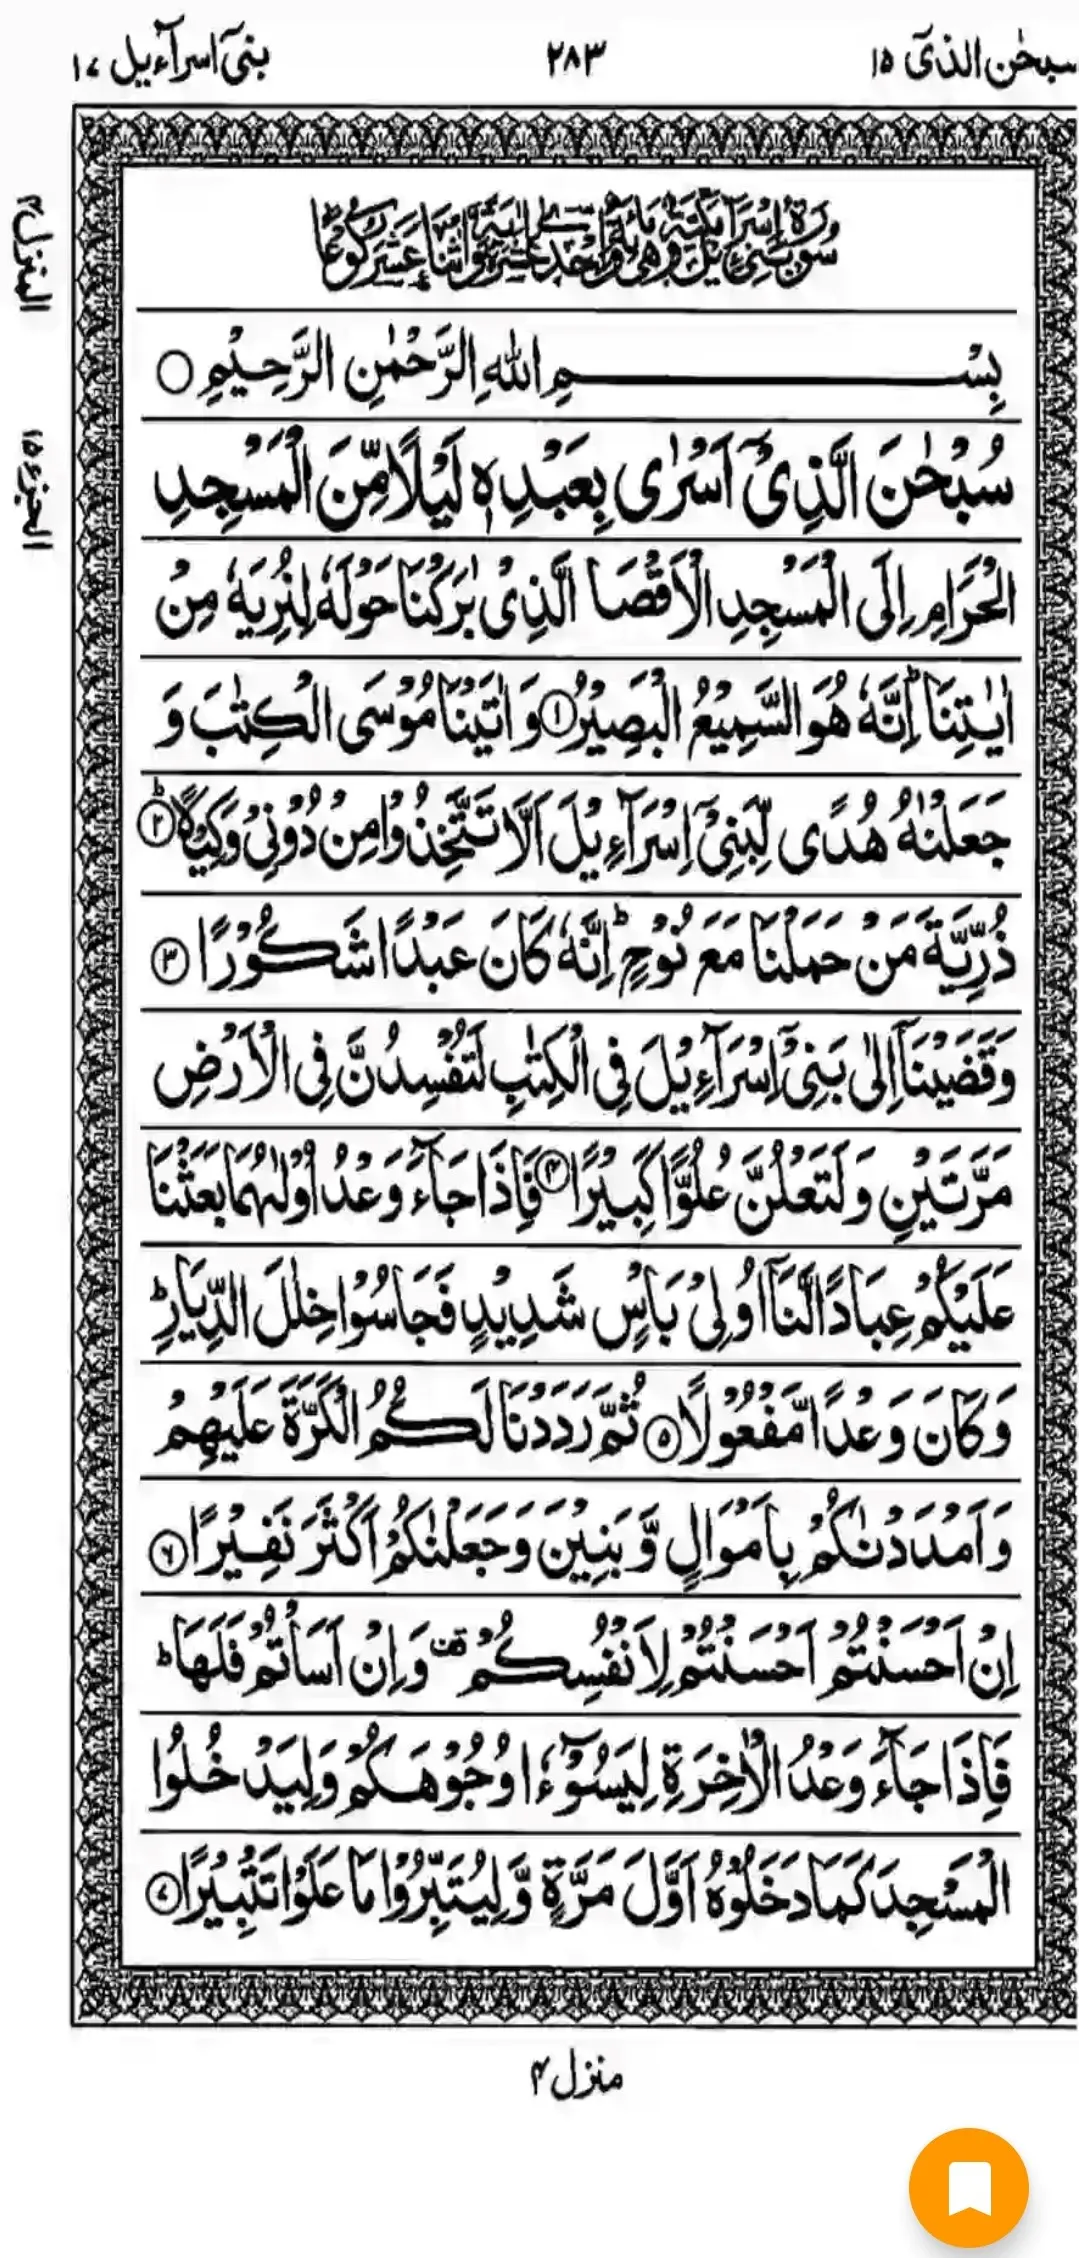 سبحٰن الذیٓ ۱۵ ۲۸۳ بنیٓ اسرآءیل ۱۷
المنزل ۴
الجزء ۱۵
سُوْرَةُ بَنِيْٓ اِسْرَآءِيْلَ مَكِّيَّةٌ وَّهِيَ مِائَةٌ وَّاِحْدٰى عَشْرَةَ اٰيَةً وَّاثْنَا عَشَرَ رُكُوْعًا
بِسْمِ اللّٰهِ الرَّحْمٰنِ الرَّحِيْمِ ○
سُبْحٰنَ الَّذِیْۤ اَسْرٰی بِعَبْدِهٖ لَیْلًا مِّنَ الْمَسْجِدِ
الْحَرَامِ اِلَی الْمَسْجِدِ الْاَقْصَا الَّذِیْ بٰرَكْنَا حَوْلَهٗ لِنُرِیَهٗ مِنْ
اٰیٰتِنَا ؕ اِنَّهٗ هُوَ السَّمِیْعُ الْبَصِیْرُ ۝۱ وَ اٰتَیْنَا مُوْسَی الْكِتٰبَ وَ
جَعَلْنٰهُ هُدًی لِّبَنِیْۤ اِسْرَآءِیْلَ اَلَّا تَتَّخِذُوْا مِنْ دُوْنِیْ وَكِیْلًا ؕ ۝۲
ذُرِّیَّةَ مَنْ حَمَلْنَا مَعَ نُوْحٍ ؕ اِنَّهٗ كَانَ عَبْدًا شَكُوْرًا ۝۳
وَ قَضَیْنَاۤ اِلٰی بَنِیْۤ اِسْرَآءِیْلَ فِی الْكِتٰبِ لَتُفْسِدُنَّ فِی الْاَرْضِ
مَرَّتَیْنِ وَ لَتَعْلُنَّ عُلُوًّا كَبِیْرًا ۝۴ فَاِذَا جَآءَ وَعْدُ اُوْلٰىهُمَا بَعَثْنَا
عَلَیْكُمْ عِبَادًا لَّنَاۤ اُولِیْ بَاْسٍ شَدِیْدٍ فَجَاسُوْا خِلٰلَ الدِّیَارِ ؕ
وَ كَانَ وَعْدًا مَّفْعُوْلًا ۝۵ ثُمَّ رَدَدْنَا لَكُمُ الْكَرَّةَ عَلَیْهِمْ
وَ اَمْدَدْنٰكُمْ بِاَمْوَالٍ وَّ بَنِیْنَ وَ جَعَلْنٰكُمْ اَكْثَرَ نَفِیْرًا ۝۶
اِنْ اَحْسَنْتُمْ اَحْسَنْتُمْ لِاَنْفُسِكُمْ ۫ وَ اِنْ اَسَاْتُمْ فَلَهَا ؕ
فَاِذَا جَآءَ وَعْدُ الْاٰخِرَةِ لِیَسُوْٓءٗا وُجُوْهَكُمْ وَ لِیَدْخُلُوا
الْمَسْجِدَ كَمَا دَخَلُوْهُ اَوَّلَ مَرَّةٍ وَّ لِیُتَبِّرُوْا مَا عَلَوْا تَتْبِیْرًا ۝۷
منزل ۴